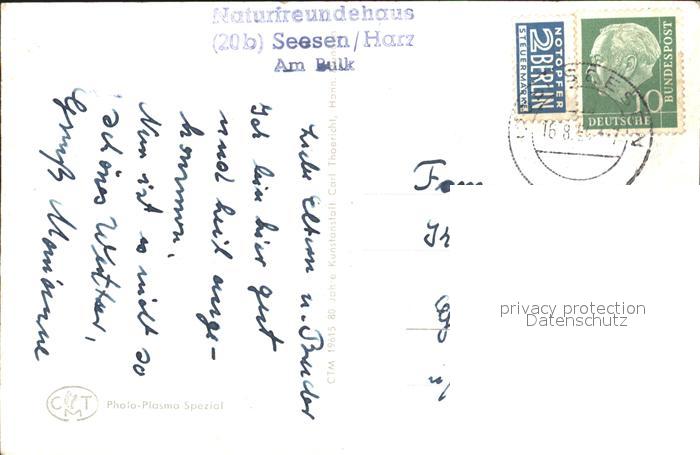 Naturfreundehaus
(20b) Seesen/Harz
Am Bulk
NOTOPFER
2 BERLIN
STEUERMARKE
10
DEUTSCHE
BUNDESPOST
SEESEN
16.8.
Liebe Eltern u. Bruder
Ich bin hier gut
und heil ange-
kommen.
Nun ist es nicht so
schönes Wetter,
Gruß Marianne
CTM 19615 80 Jahre Kunstanstalt Carl Thoericht, Hann.
Fam
privacy protection
Datenschutz
CMT
Photo-Plasma Spezial